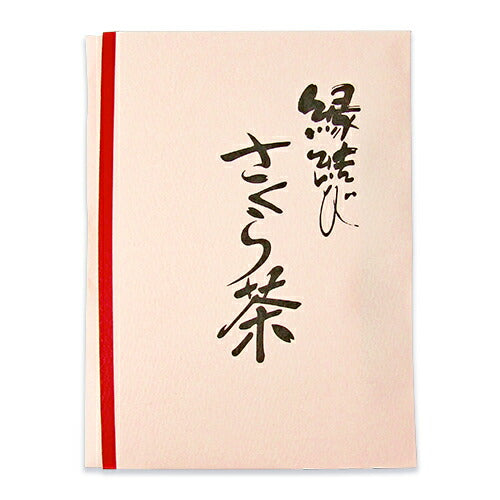 縁結び
さくら茶